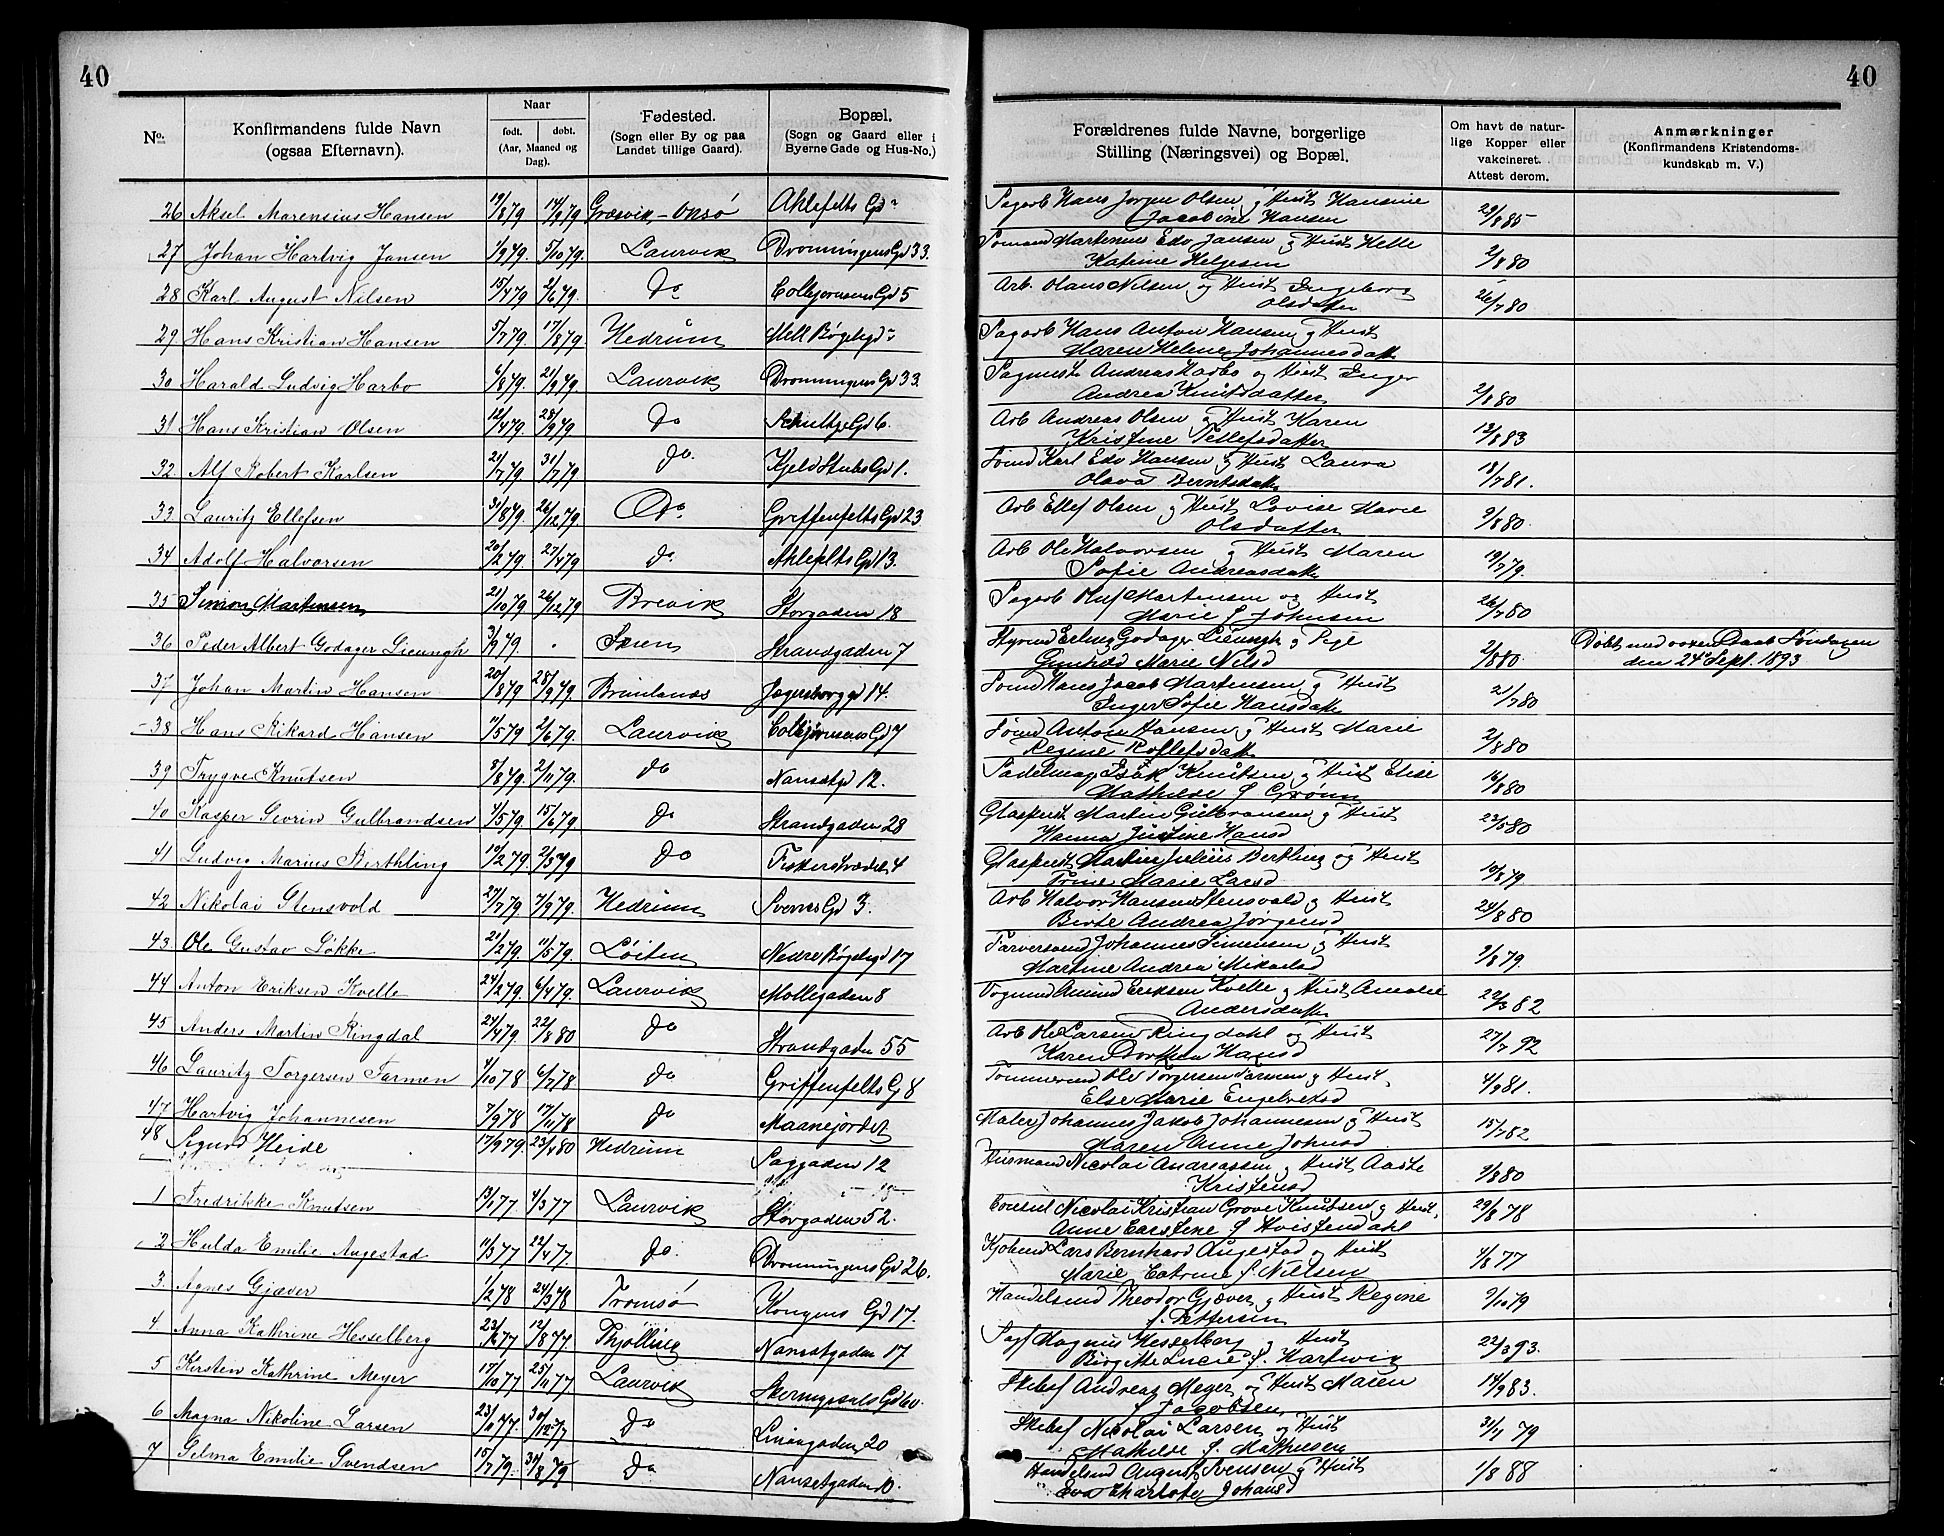 40
40
No.
Konfirmandens fulde Navn
(ogsaa Efternavn).
Naar
født.
døbt.
(Aar, Maaned og
Dag).
Fødested.
(Sogn eller By og paa
Landet tillige Gaard).
Bopæl.
(Sogn og Gaard eller i
Byerne Gade og Hus-No.)
Forældrenes fulde Navne, borgerlige
Stilling (Næringsvei) og Bopæl.
Om havt de natur-
lige Kopper eller
vakcineret.
Attest derom.
Anmærkninger
(Konfirmandens Kristendoms-
kundskab m. V.)
26 Aksel Marensius Hansen 19/8 79 14/9 79 Græsvik-Onsø Ahlefelts Gd Sagarb Hans Jørgen Olsen og Hust Hansine 29/8 85
Jacobine Hansen
27 Johan Hartvig Jansen 1/9 79. 5/10 79. Laurvik Dronningens Gd 33. Sømand Martenius Edv Jansen og Hust Helle 2/8 80
Katrine Helgesen
28 Karl August Nilsen 15/4 79 2/6 79. Do Colbjørnsens Gd 5 Arb. Olaus Nilsen og Hust Ingeborg 26/7 80
Olsdatter
29. Hans Kristian Hansen 5/7 79. 17/8 79 Hedrum Mell Bøgelygd Sagarb Hans Anton Hansen og Hust
Maren Helene Johannesdatt
30 Harald Ludvig Harbo 6/8 79. 21/9 79. Laurvik Dronningens Gd 33. Sagmest. Andreas Harbo og Hust Inger 2/8 80
Andrea Knutsdatter
31 Hans Kristian Olsen 12/4 79. 28/9 79 Do Schultzes Gd 6. Arb Andreas Olsen og Hust Karen 12/8 83
Kristine Tellefsdatter
32. Alf Robert Karlsen 21/7 79. 31/7 79 Do. Kjeld Stubs Gd 1. Sømd Karl Edv Hansen og Hust Laura 18/7 81.
Olava Berntsdatt
33. Lauritz Ellefsen 31/8 79. 26/12 79 Do Griffenfelts Gd 23 Arb Ellef Olsen og Hust Lovise Marie 9/8 80.
Olsdatter
34 Adolf Halvorsen 20/2 79. 27/4 79 Do. Ahlefelts Gd 13. Arb Ole Halvorsen og Hust Maren 19/7 79.
Sofie Andreasdatt
35 Simon Martensen 21/10 79 26/12 79 Brevik Storgaden 18 Sagarb Oluf Martensen og Hust 26/7 80
Marie f Johnsen
36 Peder Albert Godager Lieungh 3/9 79. Skien Strandgaden 7 Styrmd Erling Godager Lieungh og Pige 2/8 80 Døbt med voxen Daab Søndagen
Gunhild Marie Nilsd den 24de Sept. 1893
37 Johan Martin Hansen 20/8 79 28/9 79 Brunlanes Jegersborggd 14. Sømd Hans Jacob Martensen og Hust 21/7 80
Inger Sofie Hansdatt
38 Hans Rikard Hansen 11/5 79 2/6 79. Laurvik Colbjørnsens Gd 7 Sømd Anton Hansen og Hust Marie 2/8 80
Regine Rollefsdatt
39 Trygve Knutsen 3/8 79 2/11 79. Do Nansetgd 12. Sadelmag Isak Knutsen og Hust Elise 16/8 80
Mathilde f Grønn
40 Kasper Sevrin Gulbrandsen 4/5 79 15/6 79 Do Strandgaden 28 Glaspust Martin Gulbransen og Hust 23/8 80
Hanna Justine Hansd
41 Ludvig Marius Berthling 12/2 79. 2/3 79 Do Fiskerstrædet 4 Glaspust Martin Julius Bertling og Hust 10/8 79
Trine Marie Larsd
42 Nikolai Stensvold 27/7 79 7/9 79. Hedrum Sverres Gd 3. Arb Halvor Hansen Stensvold og Hust 24/8 80
Berte Andrea Jørgensd
43. Ole Gustav Løkke 21/2 79. 11/5 79. Løiten Nedre Bøgelygd 17 Farversvend Johannes Simensen og Hust 9/8 79.
Martine Andrea Mikaelsd
44 Anton Eriksen Kvelle 24/2 79. 6/4 79. Laurvik Møllegaden 8 Amund Eriksen Kvelle og Hust Amalie 22/3 82
Andersdatt
45 Anders Martin Ringdal 24/4 79. 22/8 80 Do Strandgaden 55 Arb Ole Larsen Ringdahl og Hust 27/7 92
Karen Dorthea Hansd
46 Lauritz Torgersen Farmen 4/10 78 6/7 78 Do Griffenfelts G 8 Tømmermd Ole Torgersen Farmen og Hust. 4/9 81.
Else Marie Engebretsd
47 Hartvig Johannesen 7/9 78 17/11 78 Do Maanejordet Maler Johannes Jakob Johannesen og Hust 15/7 82
Maren Anne Johnsd
48 Sigurd Heide 17/9 79. 23/4 80 Hedrum Saggaden 12 Husmand Nicolai Andreassen og Hust Aaste 9/8 80
Kristensd
1 Fredrikke Knutsen 13/1 77 4/3 77 Laurvik Storgaden 52. Consul Nicolai Kristian Grove Knudsen og Hust. 29/8 78
Anne Carstine f Hvistendahl
2 Hulda Emilie Augestad 11/3 77 22/4 77. Do. Dronningens Gd 26. Kjøbmd Lars Bernhard Augestad og Hust 4/8 77
Marie Catrine f. Nielsen
3. Agnes Gjæver 1/2 78 24/3 78 Tromsø Kongens Gd 17. Handelsmd Theodor Gjæver og Hust Regine 9/10 79
f. Pettersen
4 Anna Kathrine Hesselberg 23/6 77 12/8 77. Thjølling Nansetgaden 17 Magnus Hesselberg og Hust 22/3 93.
Birgitte Lucie f. Hartwig
5 Kirsten Kathrine Meyer 17/10 77 25/11 77 Laurvik Skeringsals Gd 60. Skibsf Andreas Meyer og Hust Maren 14/9 83.
f Jacobsen
6 Magna Nikoline Larsen 23/9 77. 30/12 77 Do Linaagaden 20 Skibsf Nicolai Larsen og Hust 31/7 79
Mathilde f. Mathiesen
7 Selma Emilie Svendsen 15/7 79. 31/8 79 Do Nansetgaden 10. Handelsmd August Svensen og Hust 1/8 88
Eva Charlote Johansd